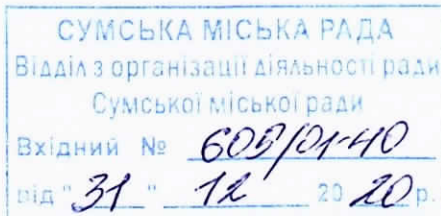 СУМСЬКА МІСЬКА РАДА
Відділ з організації діяльності ради
Сумської міської ради
Вхідний № 605/01-40
від "31" 12 2020 р.